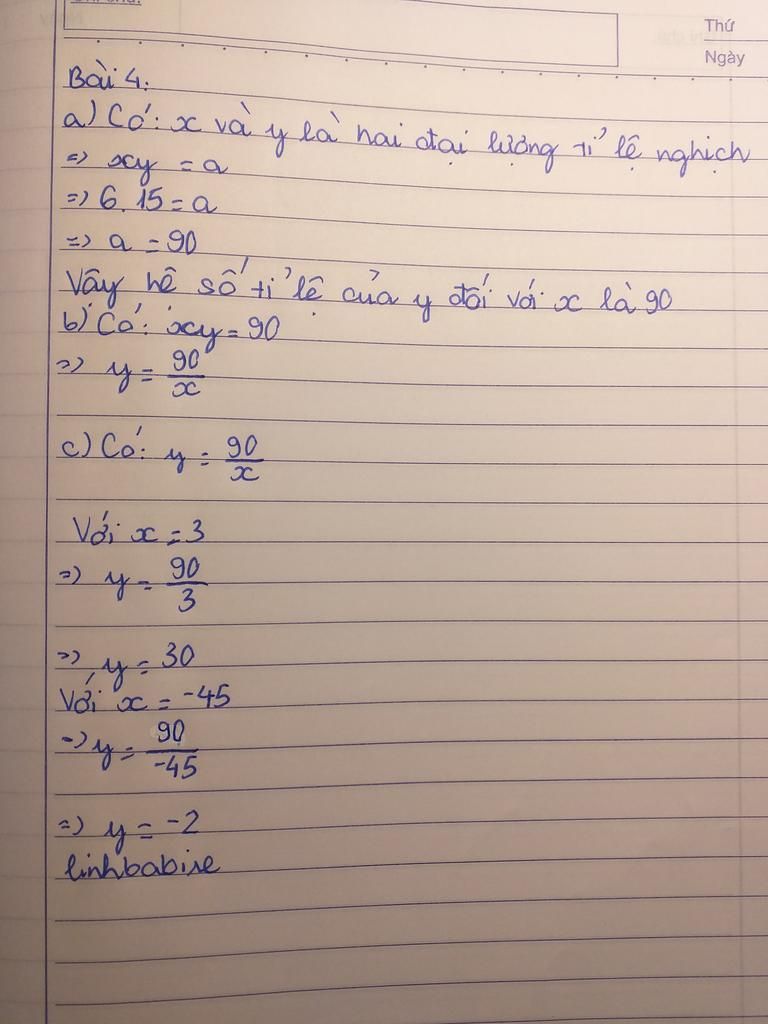 Thứ
Ngày
Bài 4:
a) Có: x và y là hai đại lượng tỉ lệ nghịch
=> xy = a
=> 6.15 = a
=> a = 90
Vậy hệ số tỉ lệ của y đối với x là 90
b) Có: xy = 90
=> y = 90/x
c) Có: y = 90/x
Với x = 3
=> y = 90/3
=> y = 30
Với x = -45
=> y = 90/-45
=> y = -2
linhbabise